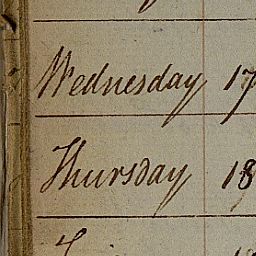 Wednesday 17
Thursday 18